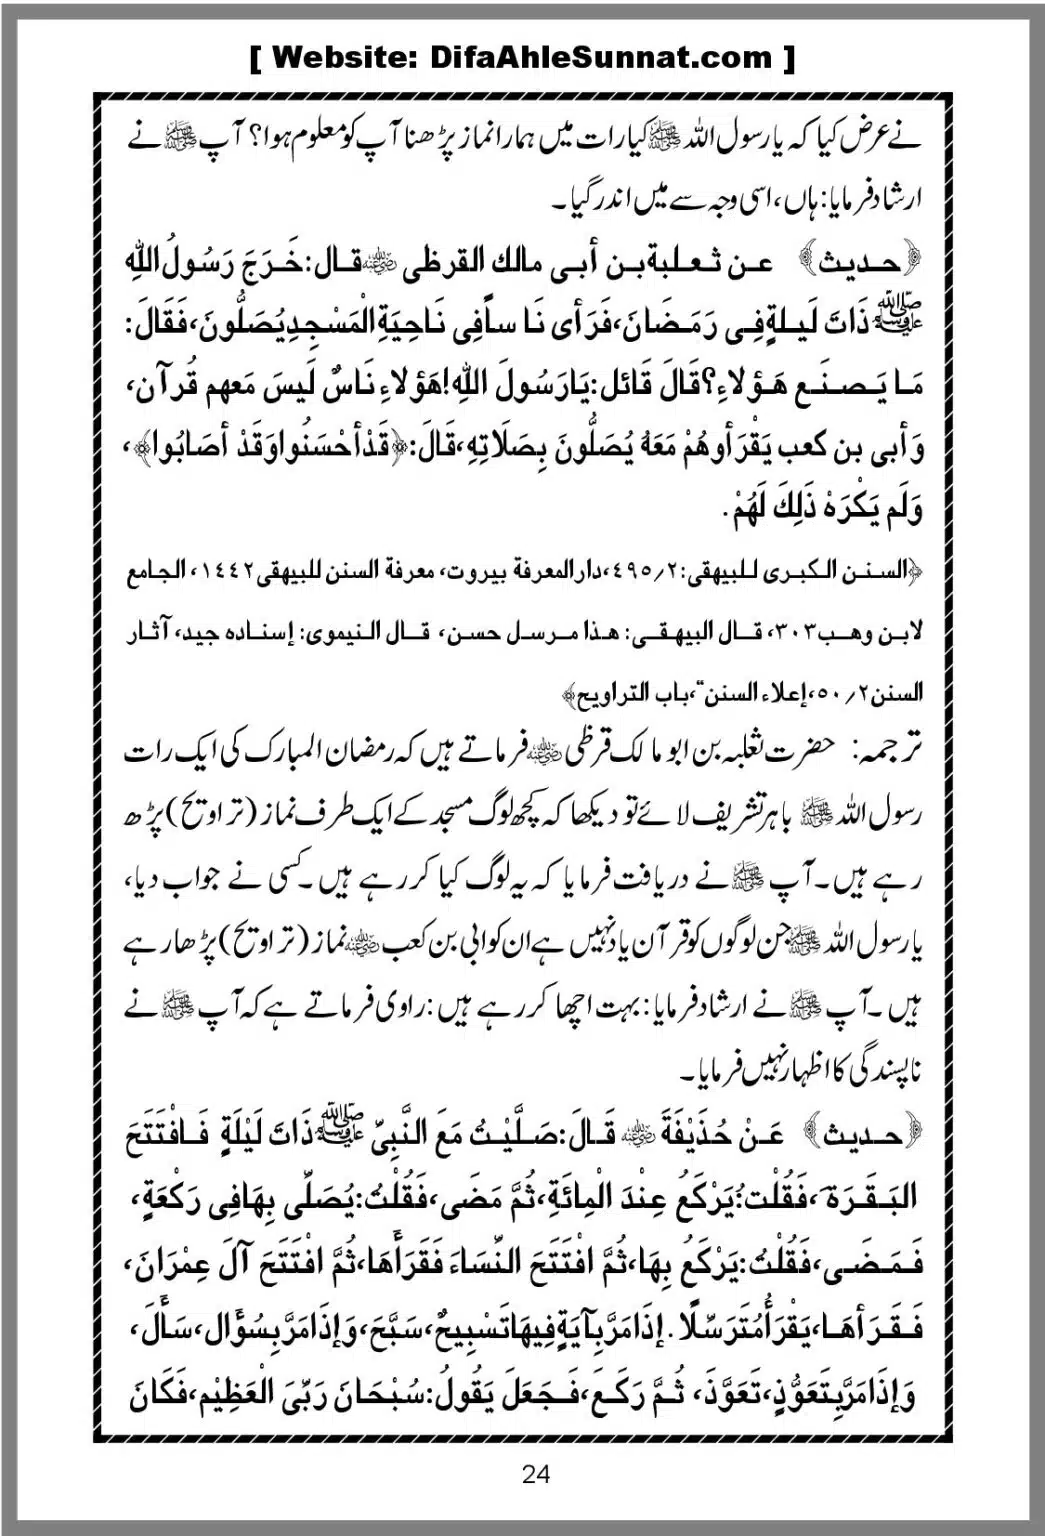 [ Website: DifaAhleSunnat.com ]
نے عرض کیا کہ یا رسول اللہ ﷺ کیا رات میں ہمارا نماز پڑھنا آپ کو معلوم ہوا؟ آپ ﷺ نے
ارشاد فرمایا: ہاں، اسی وجہ سے میں اندر گیا۔
﴿حدیث﴾ عن ثعلبة بن أبی مالك القرظی رضی اللہ عنہ قال: خَرَجَ رَسُولُ اللهِ
ﷺ ذَاتَ لَیلةٍ فِی رَمَضَانَ، فَرَأی نَا سأً فِی نَاحِیَةِ الْمَسْجِدِ یُصَلُّونَ، فَقَالَ:
مَا یَصنَع هَؤلاءِ؟ قَالَ قَائل: یَارَسُولَ اللهِ! هَؤلاءِ نَاسٌ لَیسَ مَعهم قُرآن،
وَأبی بن کعب یَقْرَأ وهُمْ مَعَهُ یُصَلُّونَ بِصَلَاتِهِ، قَالَ: ﴿قَدْ أحْسَنُوا وَقَدْ أصَابُوا﴾،
وَلَم یَکْرَهْ ذَلِكَ لَهُمْ.
﴿السنن الکبری للبیهقی: ۲/۴۹۵، دارالمعرفة بیروت، معرفة السنن للبیهقی ۱۴۴۲، الجامع
لابن وهب ۳۰۳، قال البیهقی: هذا مرسل حسن، قال النیموی: إسناده جید، آثار
السنن ۲/۵۰، إعلاء السنن“، باب التراویح﴾
ترجمہ: حضرت ثعلبہ بن ابو مالک قرظی رضی اللہ عنہ فرماتے ہیں کہ رمضان المبارک کی ایک رات
رسول اللہ ﷺ باہر تشریف لائے تو دیکھا کہ کچھ لوگ مسجد کے ایک طرف نماز (تراویح) پڑھ
رہے ہیں۔ آپ ﷺ نے دریافت فرمایا کہ یہ لوگ کیا کر رہے ہیں۔ کسی نے جواب دیا،
یا رسول اللہ ﷺ جن لوگوں کو قرآن یاد نہیں ہے ان کو ابی بن کعب رضی اللہ عنہ نماز (تراویح) پڑھا رہے
ہیں۔ آپ ﷺ نے ارشاد فرمایا: بہت اچھا کر رہے ہیں: راوی فرماتے ہے کہ آپ ﷺ نے
ناپسندگی کا اظہار نہیں فرمایا۔
﴿حدیث﴾ عَنْ حُذَیْفَةَ رضی اللہ عنہ قَالَ: صَلَّیْتُ مَعَ النَّبِیِّ ﷺ ذَاتَ لَیْلَةٍ فَافْتَتَحَ
البَقَرَةَ، فَقُلْتُ: یَرْکَعُ عِنْدَ الْمِائَةِ، ثُمَّ مَضَی، فَقُلْتُ: یُصَلِّی بِهَا فِی رَکْعَةٍ،
فَمَضَی، فَقُلْتُ: یَرْکَعُ بِهَا، ثُمَّ افْتَتَحَ النِّسَاءَ فَقَرَأَهَا، ثُمَّ افْتَتَحَ آلَ عِمْرَانَ،
فَقَرَأهَا، یَقْرَأُ مُتَرَسِّلًا. إذَا مَرَّ بِآیَةٍ فِیهَا تَسْبِیحٌ، سَبَّحَ، وَإذَا مَرَّ بِسُؤَال، سَأَلَ،
وَإذَا مَرَّ بِتَعَوُّذٍ، تَعَوَّذَ، ثُمَّ رَکَعَ، فَجَعَلَ یَقُولُ: سُبْحَانَ رَبِّیَ الْعَظِیْم، فَکَانَ
24